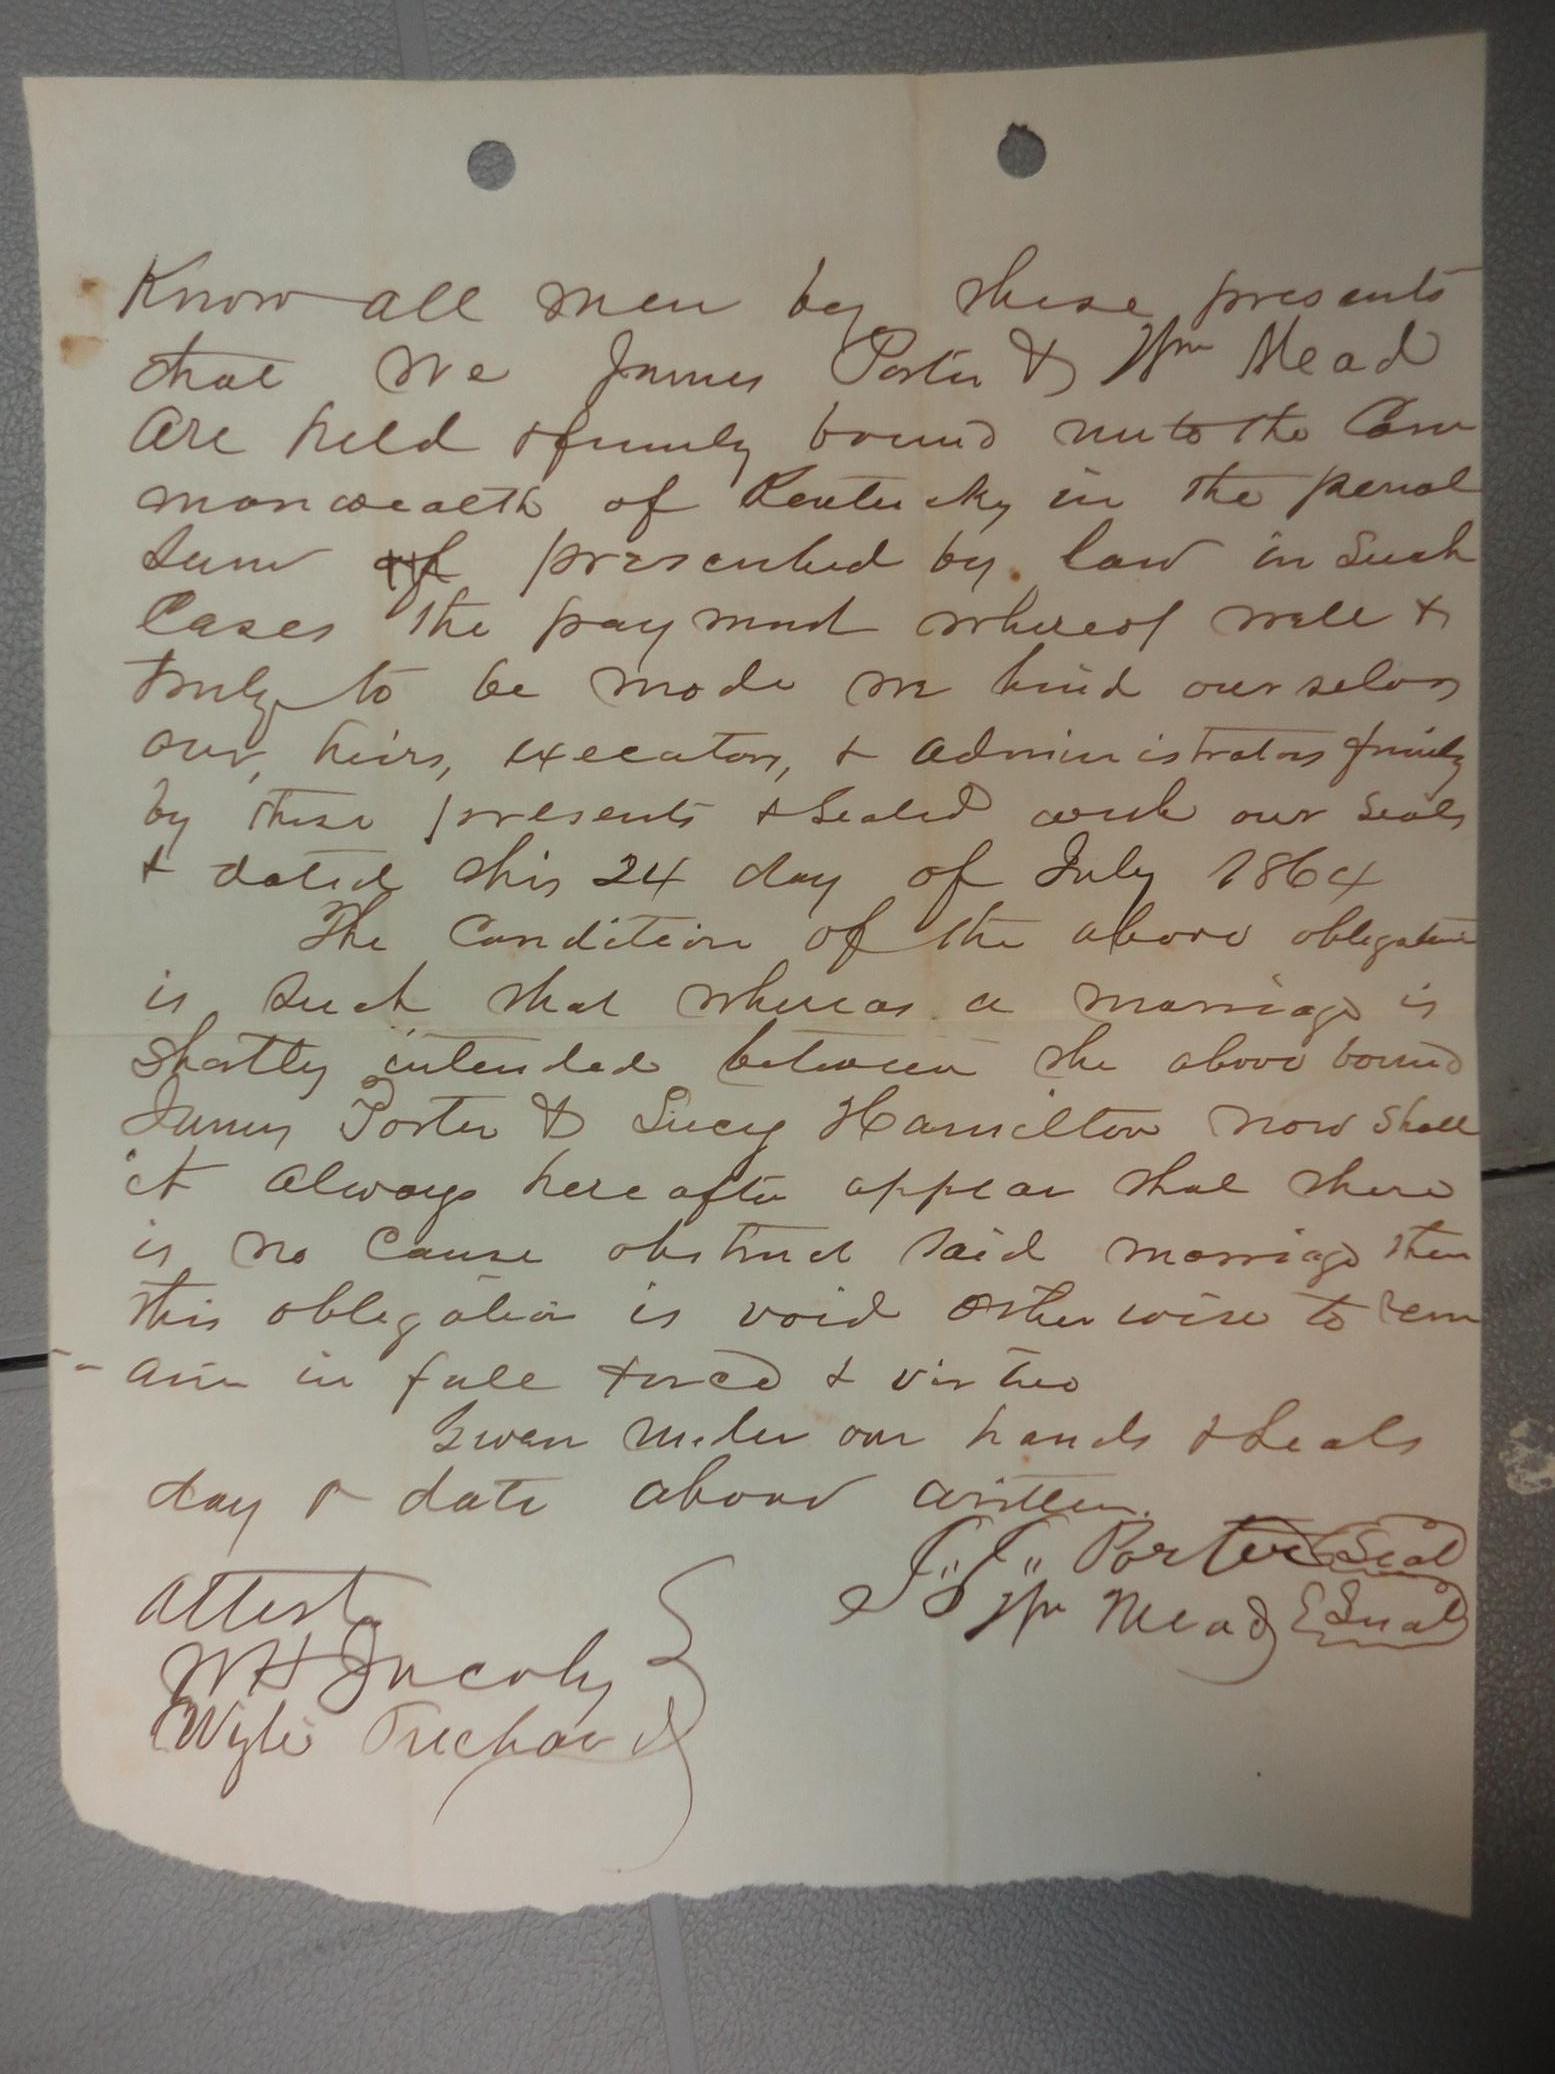 Know all men by these presents
that we James Porter & Wm Mead
Are held & firmly bound unto the Com
monwealth of Kentucky in the penal
Sum of prescribed by law in Such
Cases the payment whereof well &
truly to be made we bind ourselves
our, heirs, executors, & administrators firmly
by these presents & Sealed with our Seals
& dated this 24 day of July 1864
The Condition of the above obligation
is Such that whereas a marriage is
Shortly intended between the above bound
James Porter & Lucy Hamilton now Shall
it always hereafter appear that there
is no Cause obstruct Said marriage then
this obligation is void Otherwise to rem
ain in full force & virtue
Given under our hands & Seals
day & date above written.
J,, J,, Porter (Seal)
Wm Mead (Seal)
Attest
WH Jacoby
Wyle